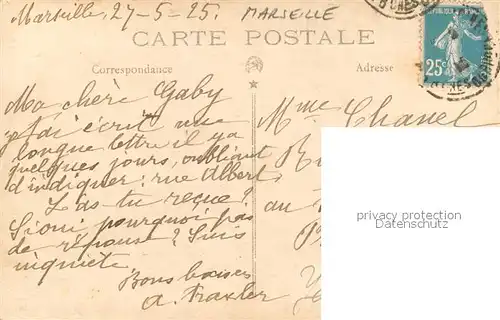 Marseille, 27-5-25. MARSEILLE
CARTE POSTALE
Correspondance
Adresse
25c
Ma chère Gaby
J'ai écrit une
longue lettre il y a
quelques jours, oubliant
d'indiquer: rue Albert,
L'as tu reçue?
Si oui, pourquoi pas
de réponse? Suis
inquiète.
Bons baisers
a.
Mme Chanel
au
privacy protection
Datenschutz